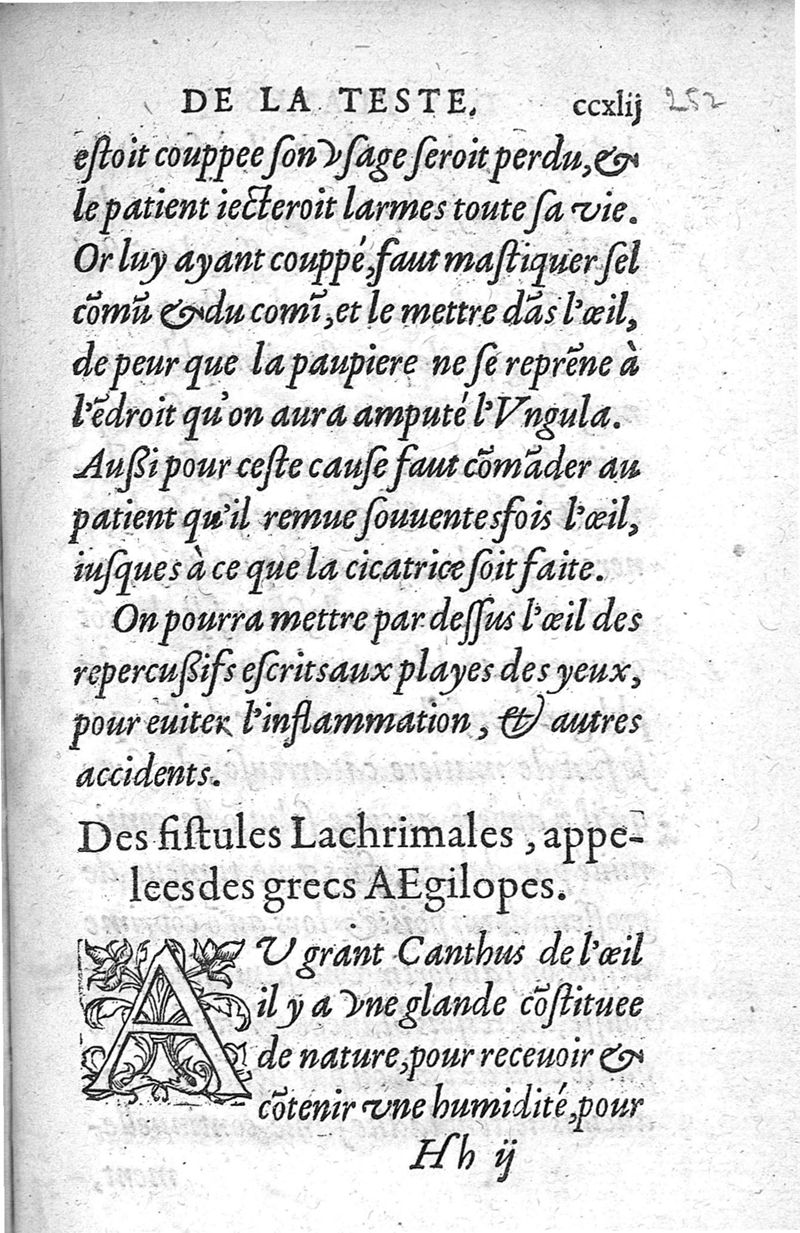 DE LA TESTE. ccxlij 252
eſtoit couppee ſon vſage ſeroit perdu, &
le patient iecteroit larmes toute ſa vie.
Or luy ayant couppé, faut maſtiquer ſel
cõmũ & du comĩ, et le mettre dãs l'œil,
de peur que la paupiere ne ſe reprẽne à
l'ẽdroit qu'on aura amputé l'Vngula.
Außi pour ceſte cauſe faut cõmãder au
patient qu'il remue ſouuentesfois l'œil,
iuſques à ce que la cicatrice ſoit faite.
On pourra mettre par deſſus l'œil des
repercußifs eſcrits aux playes des yeux,
pour euiter l'inflammation, & autres
accidents.
Des fiſtules Lachrimales, appe-
lees des grecs AEgilopes.
AV grant Canthus de l'œil
il y a vne glande cõſtituee
de nature, pour receuoir &
cõtenir vne humidité, pour
Hh ij